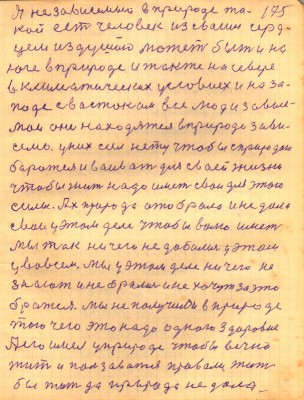 175
Я независимый в природе та-
кой есть человек из своим серд-
цем из душой может быть и на
юге в природе и также на севере
в климатических условиях и на за-
паде с востоком все люди зависи-
мо они находятся в природе зави-
семо. у них сил нету чтобы с природой
боротся и воиват для своей жизни
чтобы жит надо имет свои для этого
силы. Их природа отобрала и не дала
свои у этом деле чтобы било имет
Мы так ничего не добилис у этом
у вовсем. Мы у этом деле ничего не
знали и не брались и не хочут за это
братся. Мы не получили в природе
того чего это надо одного Здоровие
Его имел у природе чтобы вечно
жит и ползоватся правом, жит
бы жит да природа не дала.